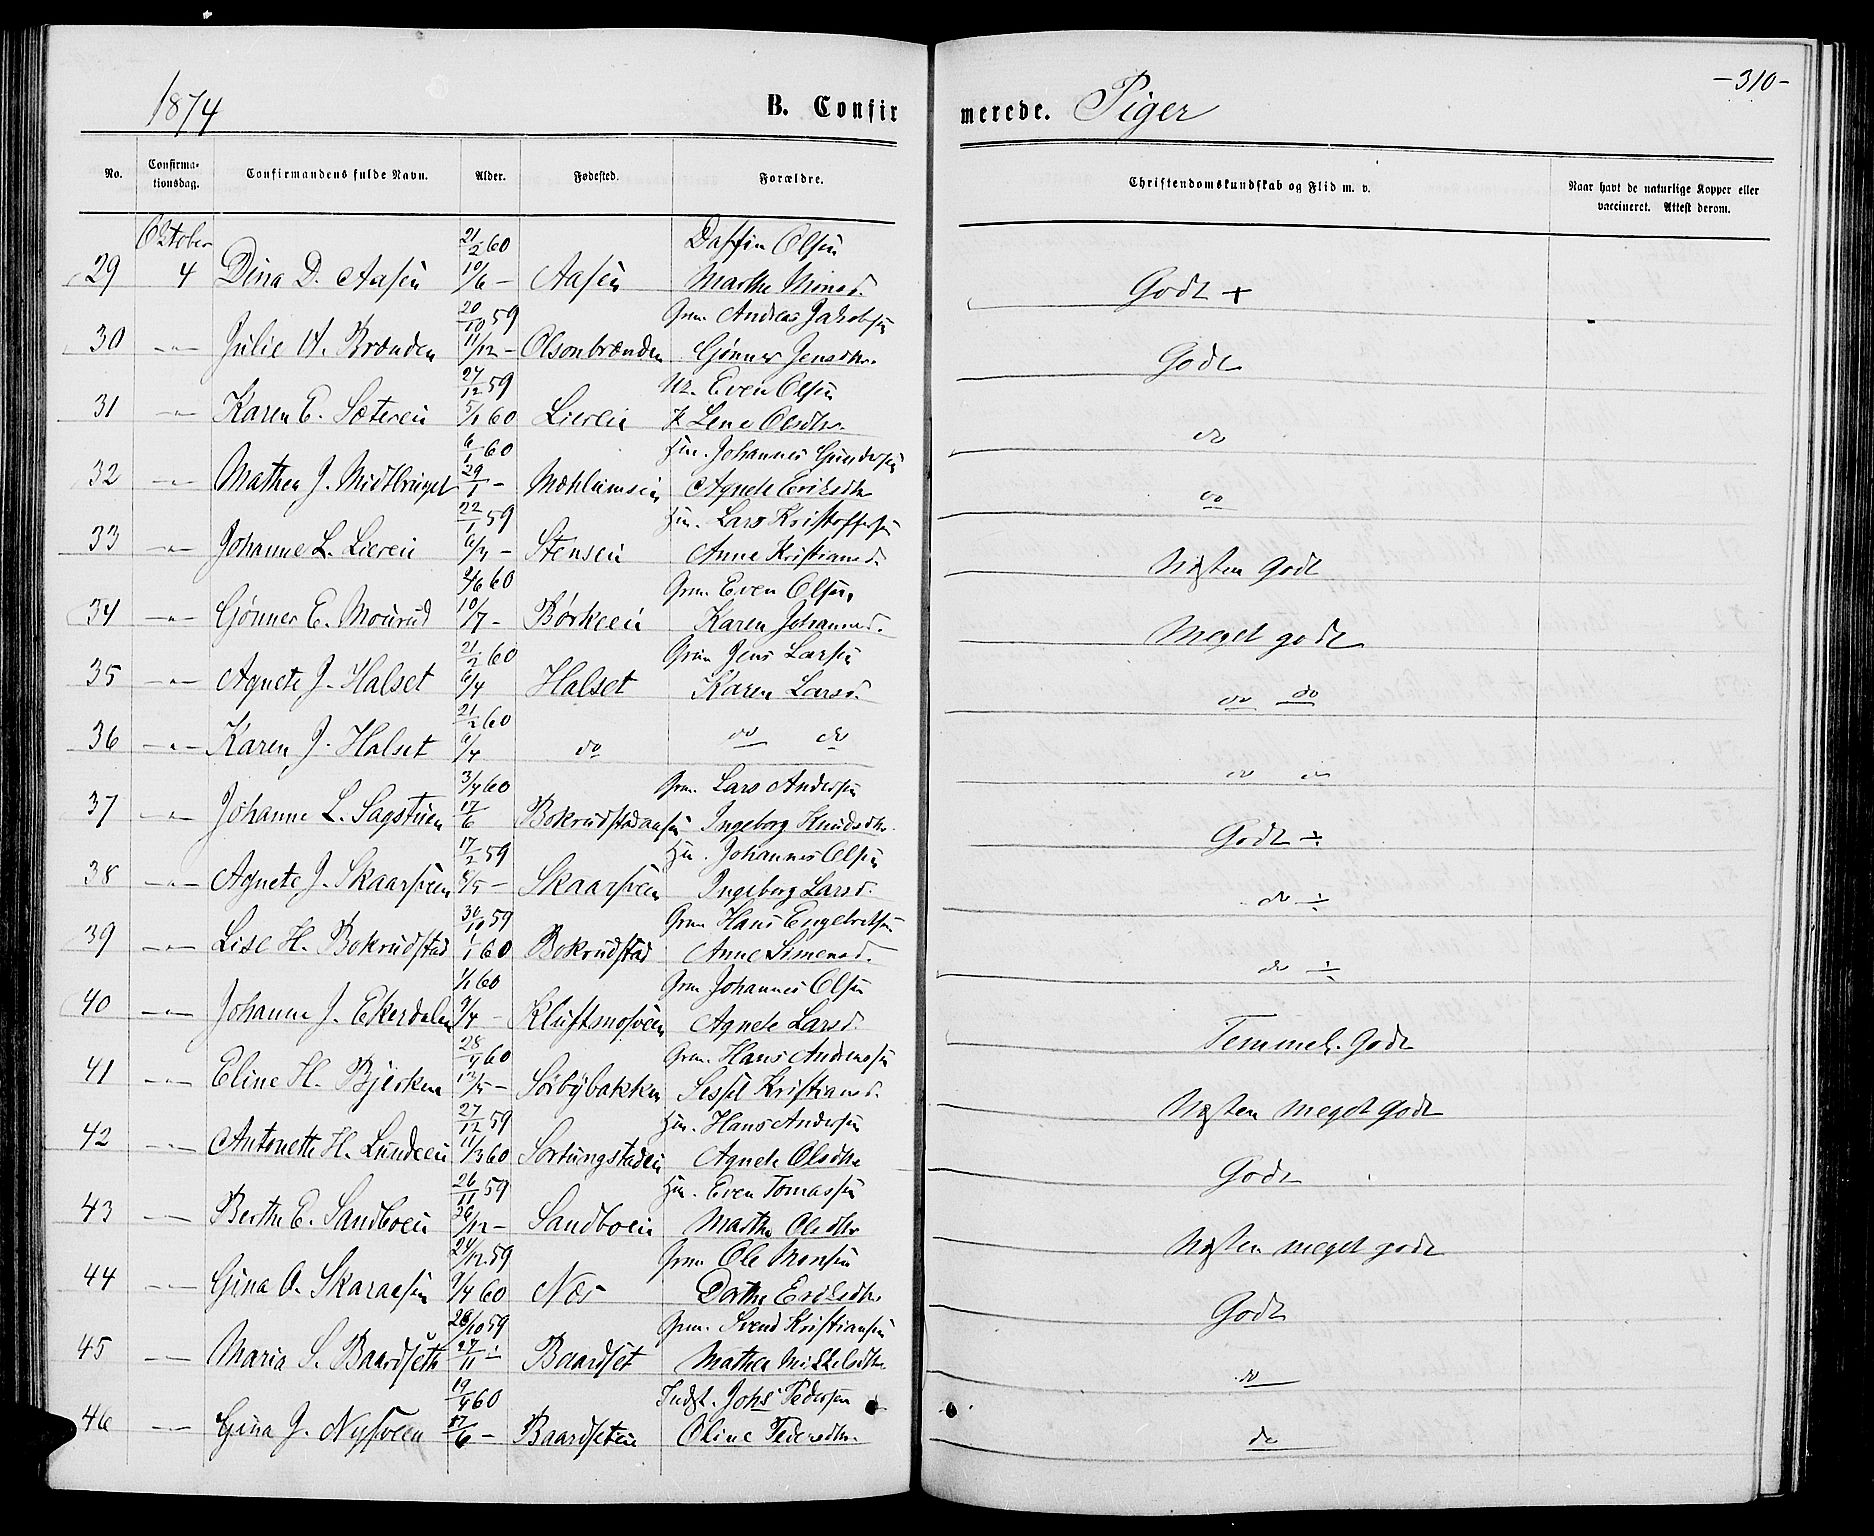 -310-
1874 B. Confirmerede. Piger
No. Confirmationsdag. Confirmandens fulde Navn. Alder. Fødested. Forældre. Christendomskundskab og Flid m. v. Naar havt de naturlige Kopper eller vaccineret. Attest derom.
Oktober 21/2 60 Daffin Olsen
29 4 Dina D. Aasen 10/6 - Aasen Marthe Monsd. Godt +
20/10 59 Grm. Andreas Jakobsen
30 -"- Julie A. Brænden 11/12 - Olsonbrænden Gønner Jensdtr. Godt
27/12 59 Even Olsen
31 -"- Karen E. Sæteren 5/2 60 Liereie Lene Olsdtr. do
6/1 60 Hm. Johannes Gundersen
32 -"- Mathea J. Midtbruget 29/1 - Mæhlumseie Agnete Eriksdtr do
22/1 59 Hm. Lars Kristoffersen
33 -"- Johanne L. Liereie 6/4 - Stenseie Anne Kristiansd. Næsten Godt
2/6 60 Grm. Even Olsen
34 -"- Gønner E. Mourud 10/7 - Børkeeie Karen Johannesd. Meget godt
21/2 60 Grm Jens Larsen
35 -"- Agnete J. Halset 6/4 Halset Karen Larsd. do do
21/2 60
36 -"- Karen J. Halset 6/4 do do do do do
3/4 60 Grm. Lars Andersen
37 -"- Johanne L. Sagstuen 17/6 Ingeborg Knudsdtr. Godt ÷
17/2 59 Hm. Johannes Olsen
38 -"- Agnete J. Skaarsveen 8/5 - Skaarsveen Ingeborg Larsd. do ÷
30/10 59 Grm Hans Engebretsen
39 -"- Lise H. Bokrudstad 1/1 60 Bokrudstad Anne Simensd. do ÷
1/1 60 Grm Johannes Olsen
40 -"- Johanne J. Ekerdalen 9/4 - Kluftsmosveen Agnete Larsd. Temmel. Godt
28/4 60 Grm. Hans Andreassen
41 -"- Eline H. Bjerken 13/5 - Sørbybakken Sessil Kristiansd. Næsten meget Godt
27/12 59 Hm. Hans Andersen
42 -"- Antonette H. Lundeeie 11/3 60 Sortungstadeie Agnete Olsdtr Godt
26/11 59 Hm. Even Tomassen
43 -"- Berthe E. Sandboeie 26/12 - Sandboeie Marthe Olsdtr Næsten meget godt
24/12 59 Grm Ole Monsen
44 -"- Gina O. Skaraasen 9/4 60 Næs Dorthe Eriksdtr. Godt
28/10 59 Grm. Svend Kristiansen
45 -"- Maria S. Baardseth 27/11 - Baardset Mathea Mikkelsdtr. do
19/4 60 Indst. Johs Pedersen
46 -"- Gina J. Nysveen 17/6 - Baardseteie Oline Pedersdtr. do